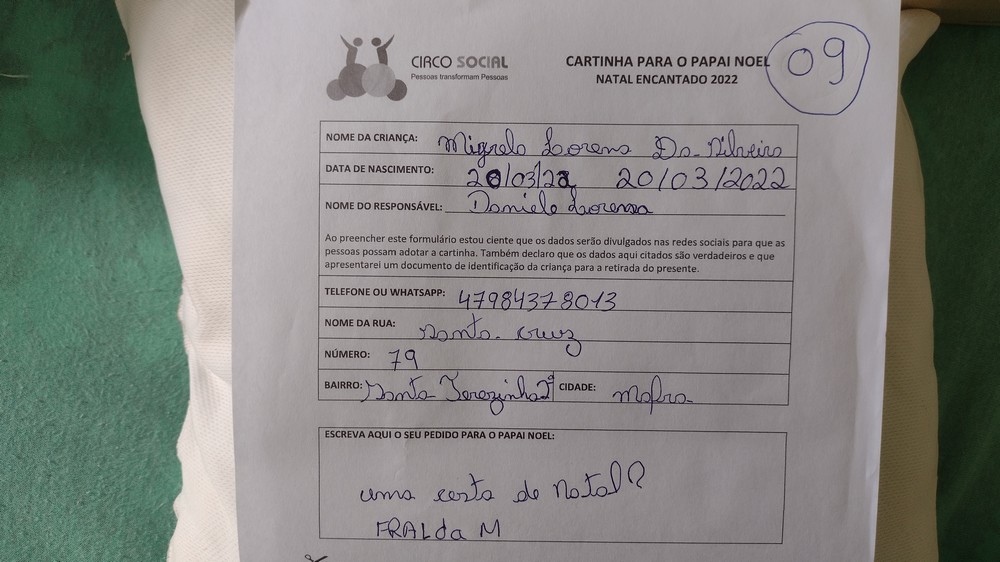 CIRCO SOCIAL
Pessoas transformam Pessoas
CARTINHA PARA O PAPAI NOEL
NATAL ENCANTADO 2022
09
NOME DA CRIANÇA: Miguel Lorena Da Silveira
DATA DE NASCIMENTO: 20/03/22 20/03/2022
NOME DO RESPONSÁVEL: Daniele Lorena
Ao preencher este formulário estou ciente que os dados serão divulgados nas redes sociais para que as
pessoas possam adotar a cartinha. Também declaro que os dados aqui citados são verdadeiros e que
apresentarei um documento de identificação da criança para a retirada do presente.
TELEFONE OU WHATSAPP: 47984378013
NOME DA RUA: Santa cruz
NÚMERO: 79
BAIRRO: Santa Terezinha CIDADE: Mafra
ESCREVA AQUI O SEU PEDIDO PARA O PAPAI NOEL:
uma cesta de Natal
FRALda M